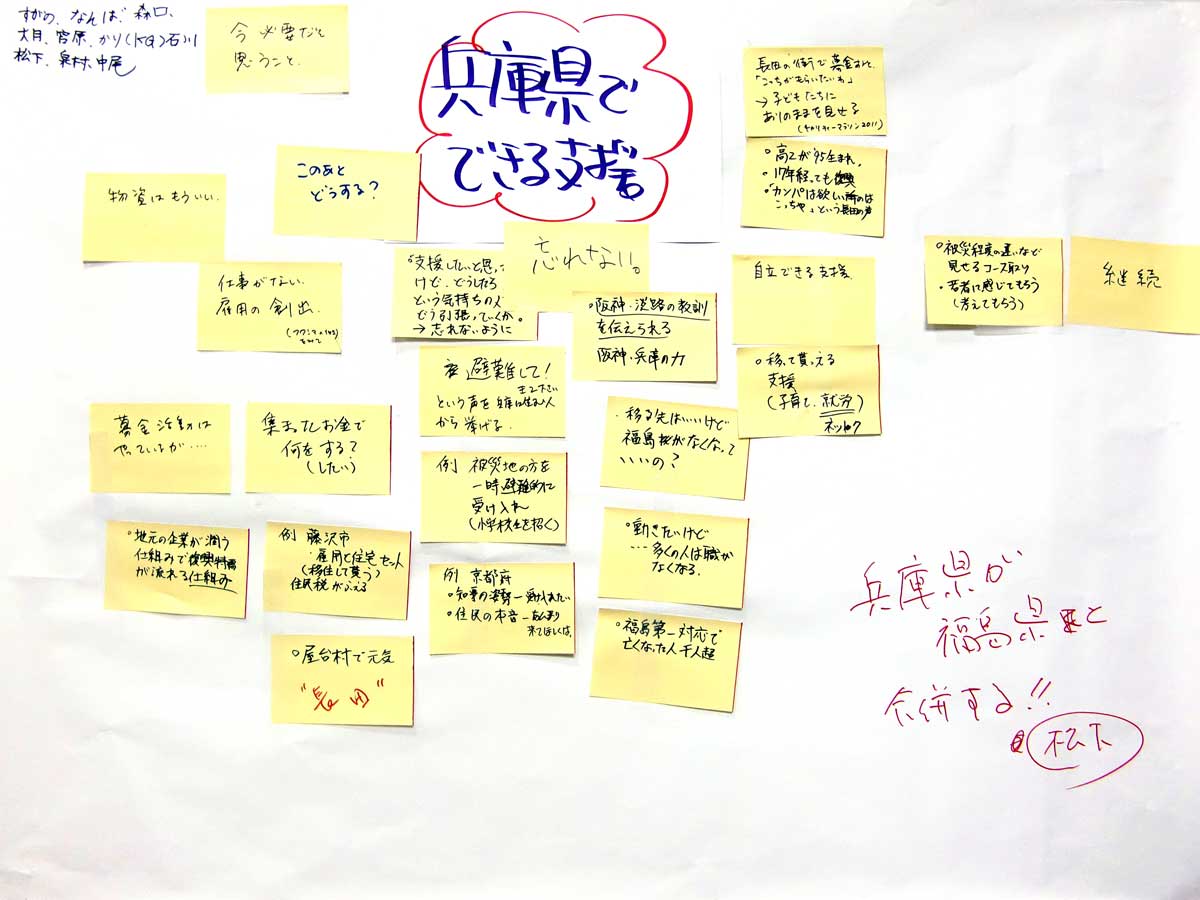 すがの、なんば、森口、
大月、宮原、かり(KG)石川
松下、奥村、中尾
今必要だと
思うこと.
兵庫県で
できる支援
長田の街で募金すると
「こっちがもらいたいわ」
→子どもたちに
ありのままを見せる
(チャリティーマラソン2011)
・高2が'95生まれ。
・17年経っても復興
・「カンパは欲しい所のは
こっちや」という長田の声
物資はもういい.
このあと
どうする?
仕事がない.
雇用の創出.
・支援したいと思っ
けど、どうしたら
という気持ちの人
どう引張っていくか。
→忘れないように
忘れない。
・阪神・淡路の教訓
を伝えられる
阪神・兵庫の力
自立できる支援.
・被災程度の違いなど
見せるコース取り
・若者に感じてもらう
(考えてもらう)
継続
・移って貰える
支援
(子育て、就労)
避難して!
という声を
から挙げる.
募金活動は
やっているが‥‥
集まったお金で
何をする?
(したい)
例 被災地の方を
一時避難的に
受け入れ
(小学校生を招く)
・移る先はいいけど
福島県がなくなって
いいの?
・地元の企業が潤う
仕組みで復興特需
が流れる仕組み
例 藤沢市
・雇用と住宅セット
(移住して貰う)
住民税がふえる
例 京都府
・知事の姿勢-受け入れたい
・住民の本音-あんまり
来てほしくは、
・動きたいけど
…多くの人は職が
なくなる.
・屋台村で元気
"長田"
・福島第一対応で
亡くなった人千人超
兵庫県が
福島県と
合併する!!
松下